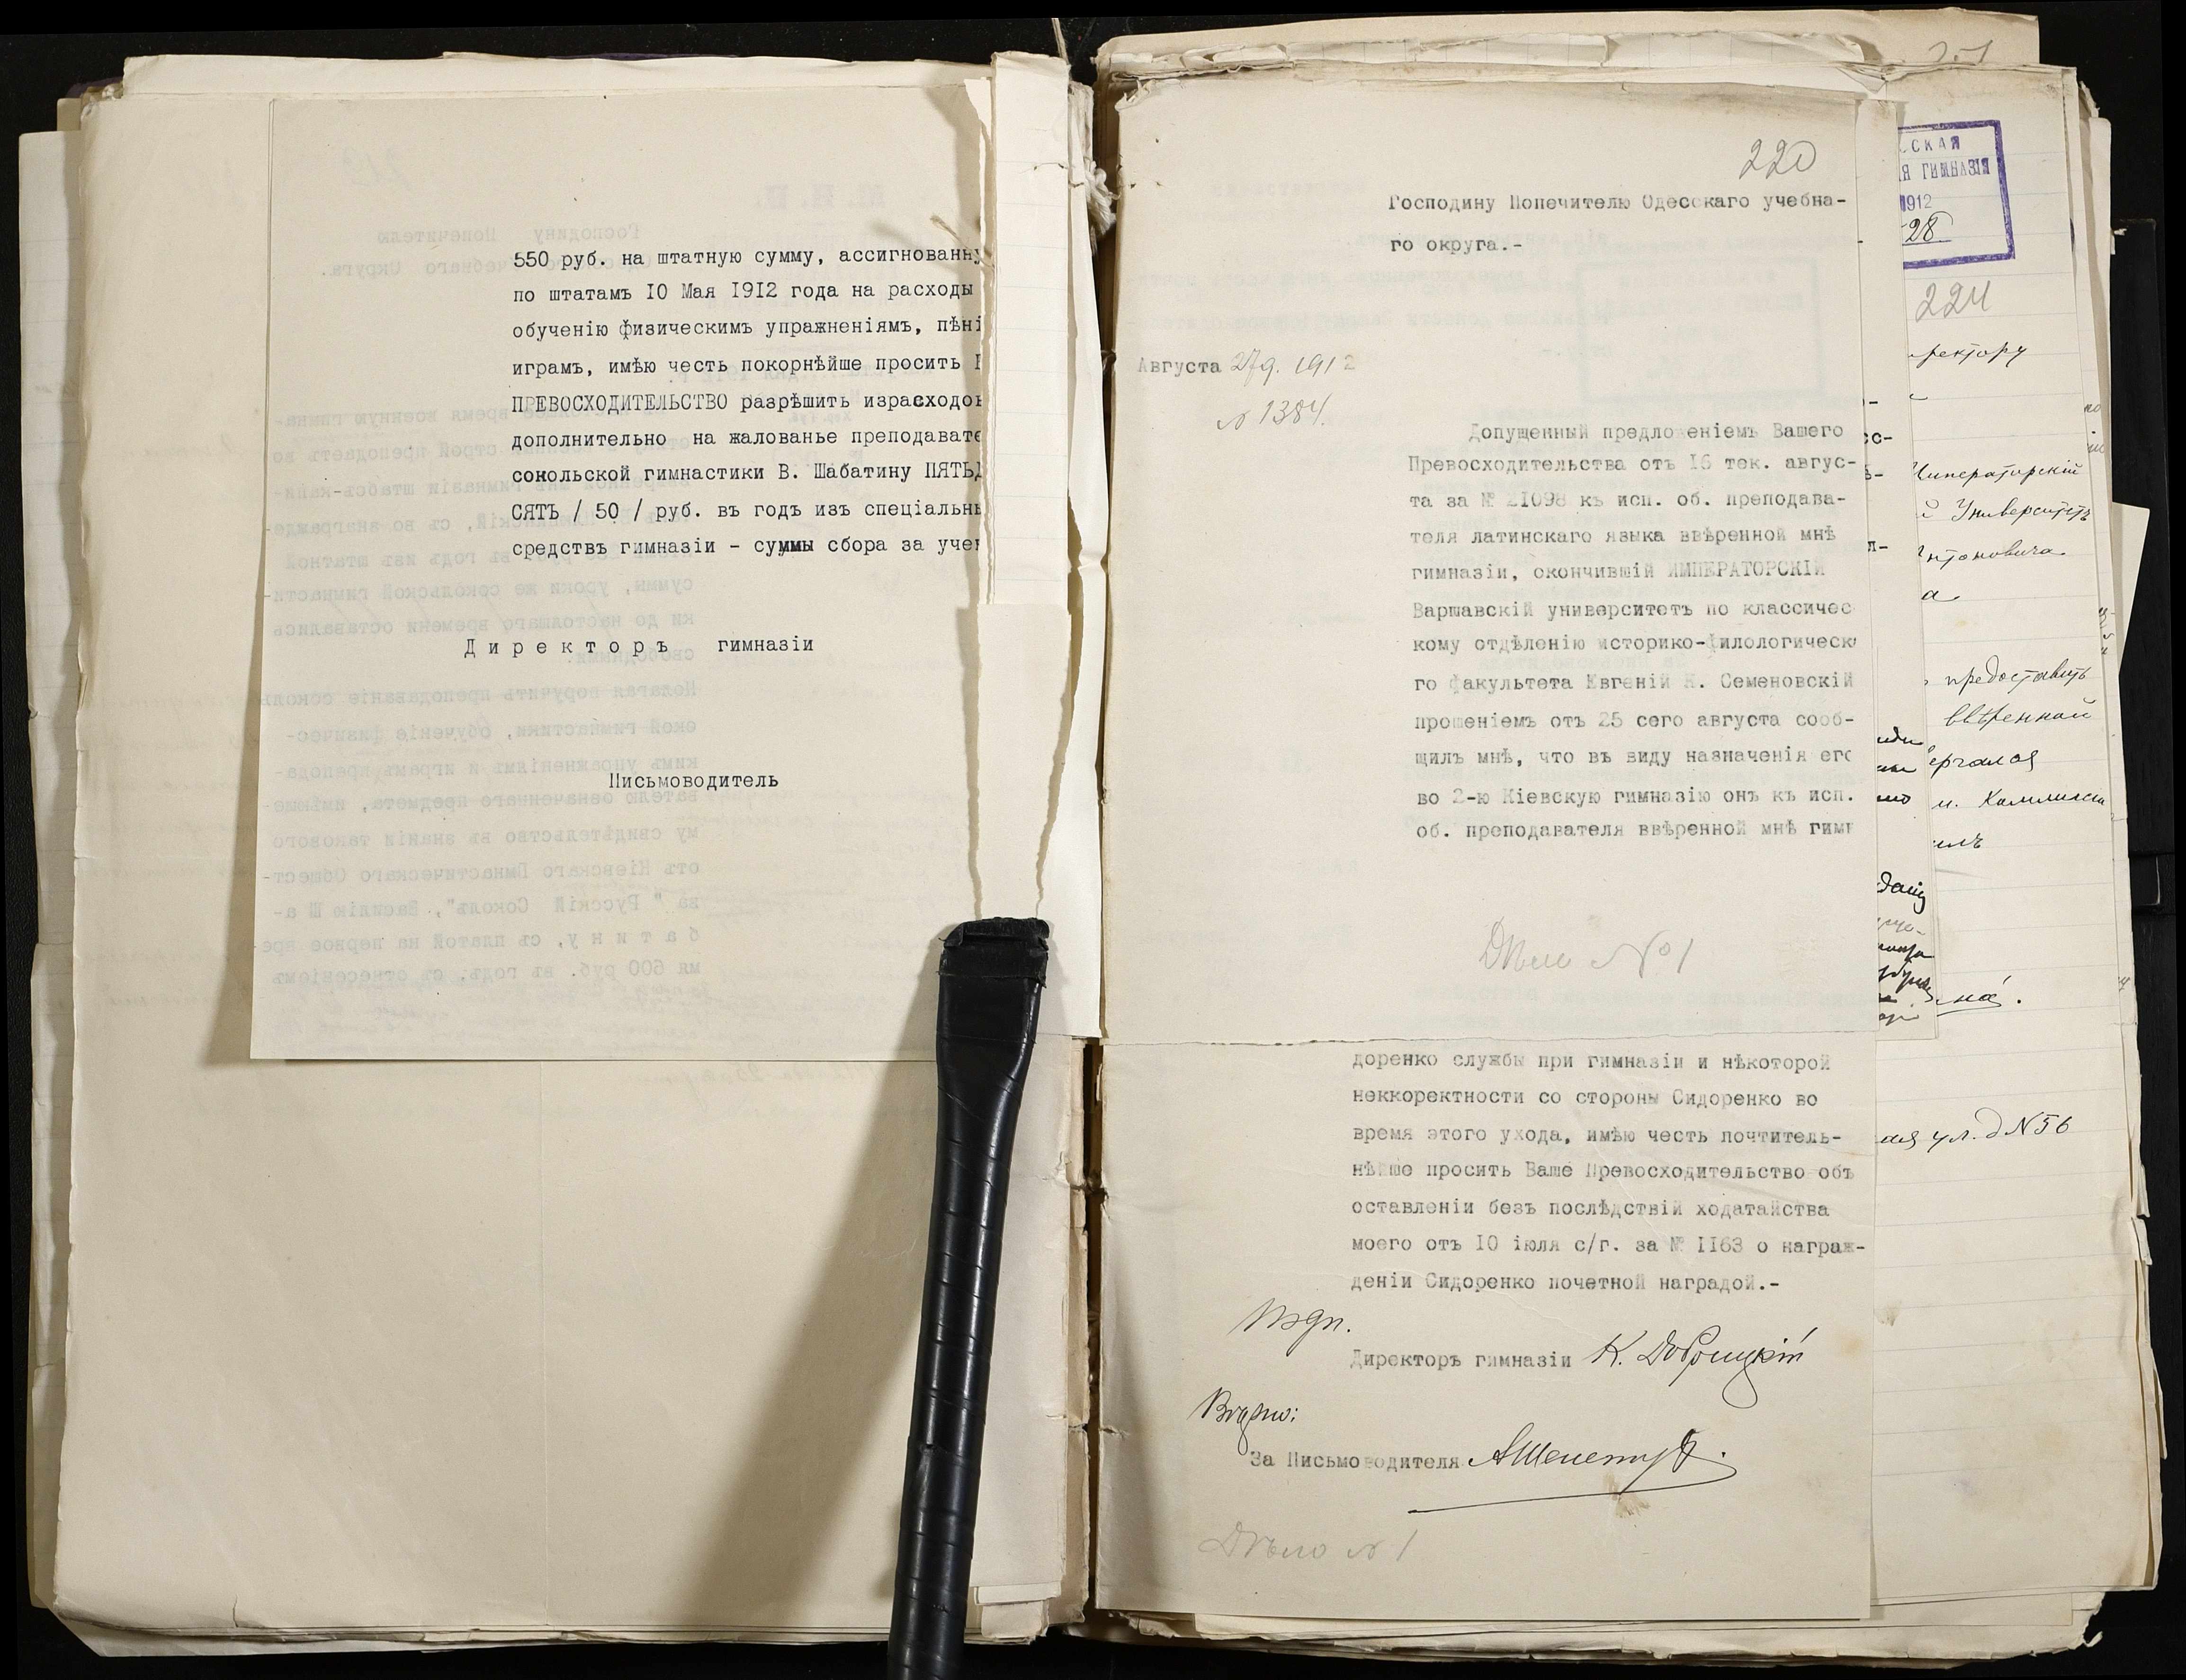 550 руб. на штатную сумму, ассигнованну
по штатамъ IO Мая I9I2 года на расходы
обученію физическимъ упражненіямъ, пѣні
играмъ, имѣю честь покорнѣйше просить
ПРЕВОСХОДИТЕЛЬСТВО разрѣшить израсходов
дополнительно на жалованье преподавате
сокольской гимнастики В. Шабатину ПЯТЬД
СЯТЬ / 50 / руб. въ годъ изъ спеціальны
средствъ гимназіи - суммы сбора за учен
Директоръ гимназіи
Письмоводитель
220
Господину Попечителю Одесскаго учебна-
го округа.-
Августа 27 д. 1912
№ 1384.
Допущенный предложеніемъ Вашего
Превосходительства отъ I6 тек. авгус-
та за № 21098 къ исп. об. преподава-
теля латинскаго языка ввѣренной мнѣ
гимназіи, окончившій ИМПЕРАТОРСКІЙ
Варшавскій университетъ по классичес
кому отдѣленію историко-филологическа
го факультета Евгеній К. Семеновскій
прошеніемъ отъ 25 сего августа сооб-
щилъ мнѣ, что въ виду назначенія его
во 2-ю Кіевскую гимназію онъ къ исп.
об. преподавателя ввѣренной мнѣ гимн
Дѣло № 1
доренко службы при гимназіи и нѣкоторой
неккоректности со стороны Сидоренко во
время этого ухода, имѣю честь почтитель-
нѣйше просить Ваше Превосходительство объ
оставленіи безъ послѣдствій ходатайства
моего отъ IO іюля с/г. за № II63 о награж-
деніи Сидоренко почетной наградой.-
Директоръ гимназіи
Вѣрно:
За Письмоводителя
Дѣло № 1
СКАЯ
Я ГИМНАЗІЯ
1912
28
224
ректору
Императорскій
Университетъ
нтоновича
предоставить
ввѣренной
ул. д N 56